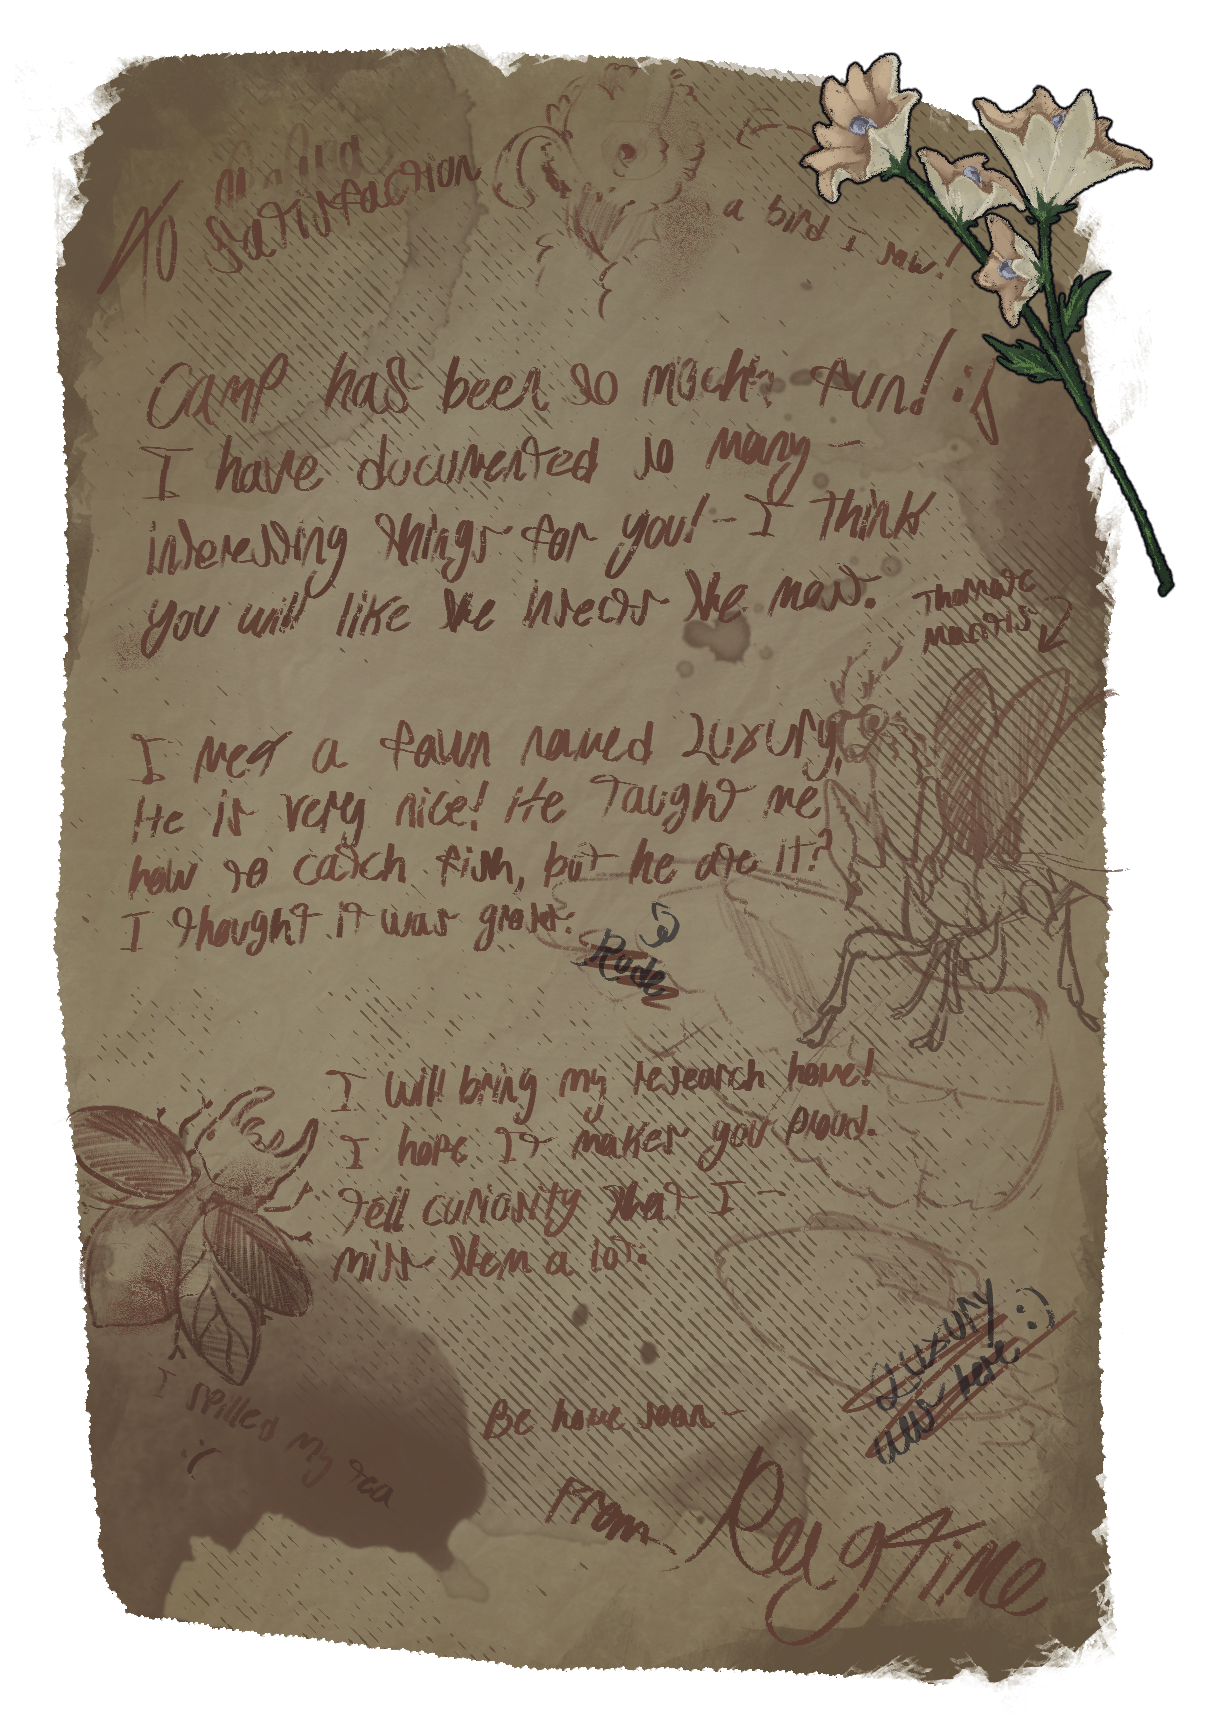 To Satisfaction
a bird I saw!
Camp has been so much fun! :)
I have documented so many -
interesting things for you! - I think
you will like the insects the most.
Thomasc
mantis
I met a fawn named Luxury,
He is very nice! He taught me
how to catch fish, but he ate it?
I thought it was gross:
Rude
I will bring my research home!
I hope It makes you proud.
Tell curiosity that I -
miss them a lot.
Luxury :)
was here
I spilled my tea
:(
Be home soon -
From Ragtime